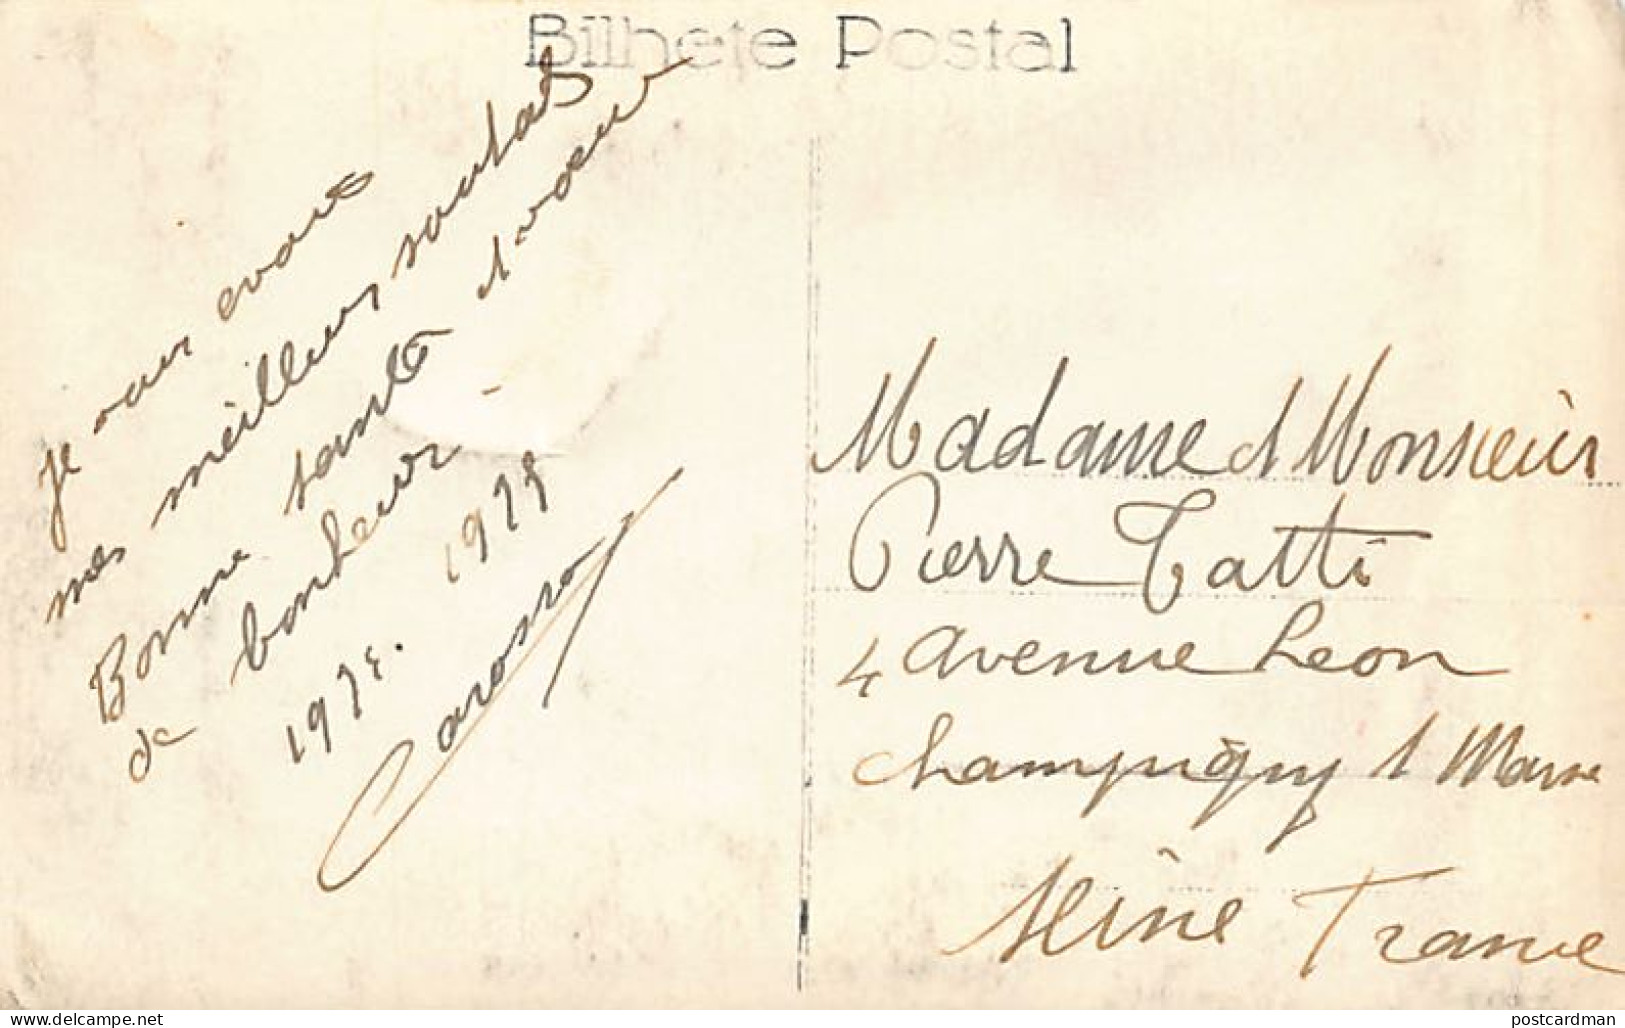 Bilhete Postal
je vous envoie
mes meilleurs souhaits
Bonne santé et voeux
de bonheur
1924. 1925
Carosso
Madame et Monsieur
Pierre Tatti
4 avenue Leon
Champigny s Marne
Seine France
delcampe.net
postcardman